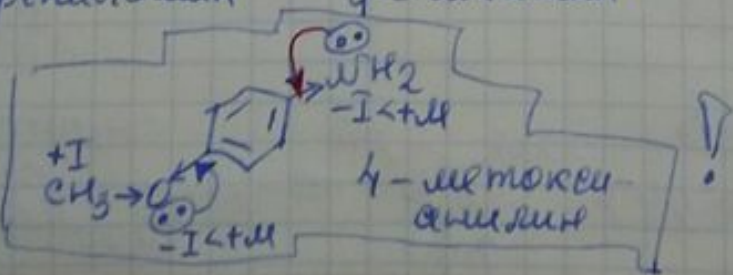 NH2
-I<+M
+I
CH3→O
-I<+M
4-метокси
анилин
!